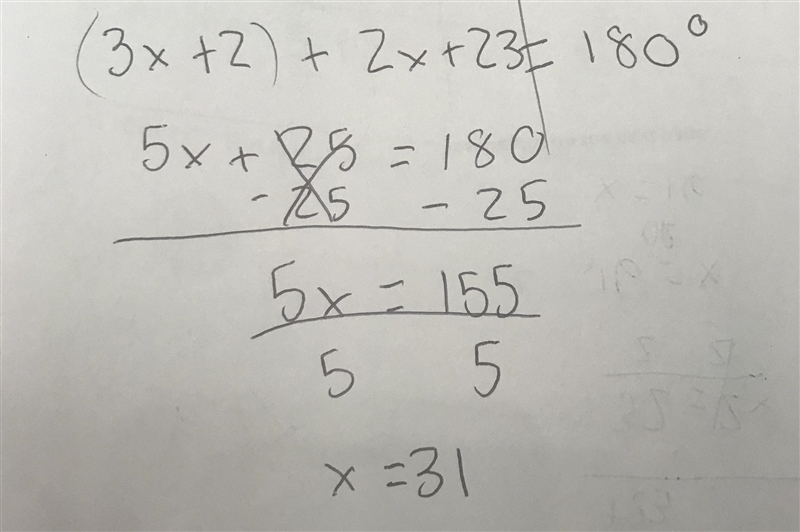 (3x + 2) + 2x + 23 = 180°
5x + 25 = 180
- 25 - 25
5x = 155
5 5
x = 31